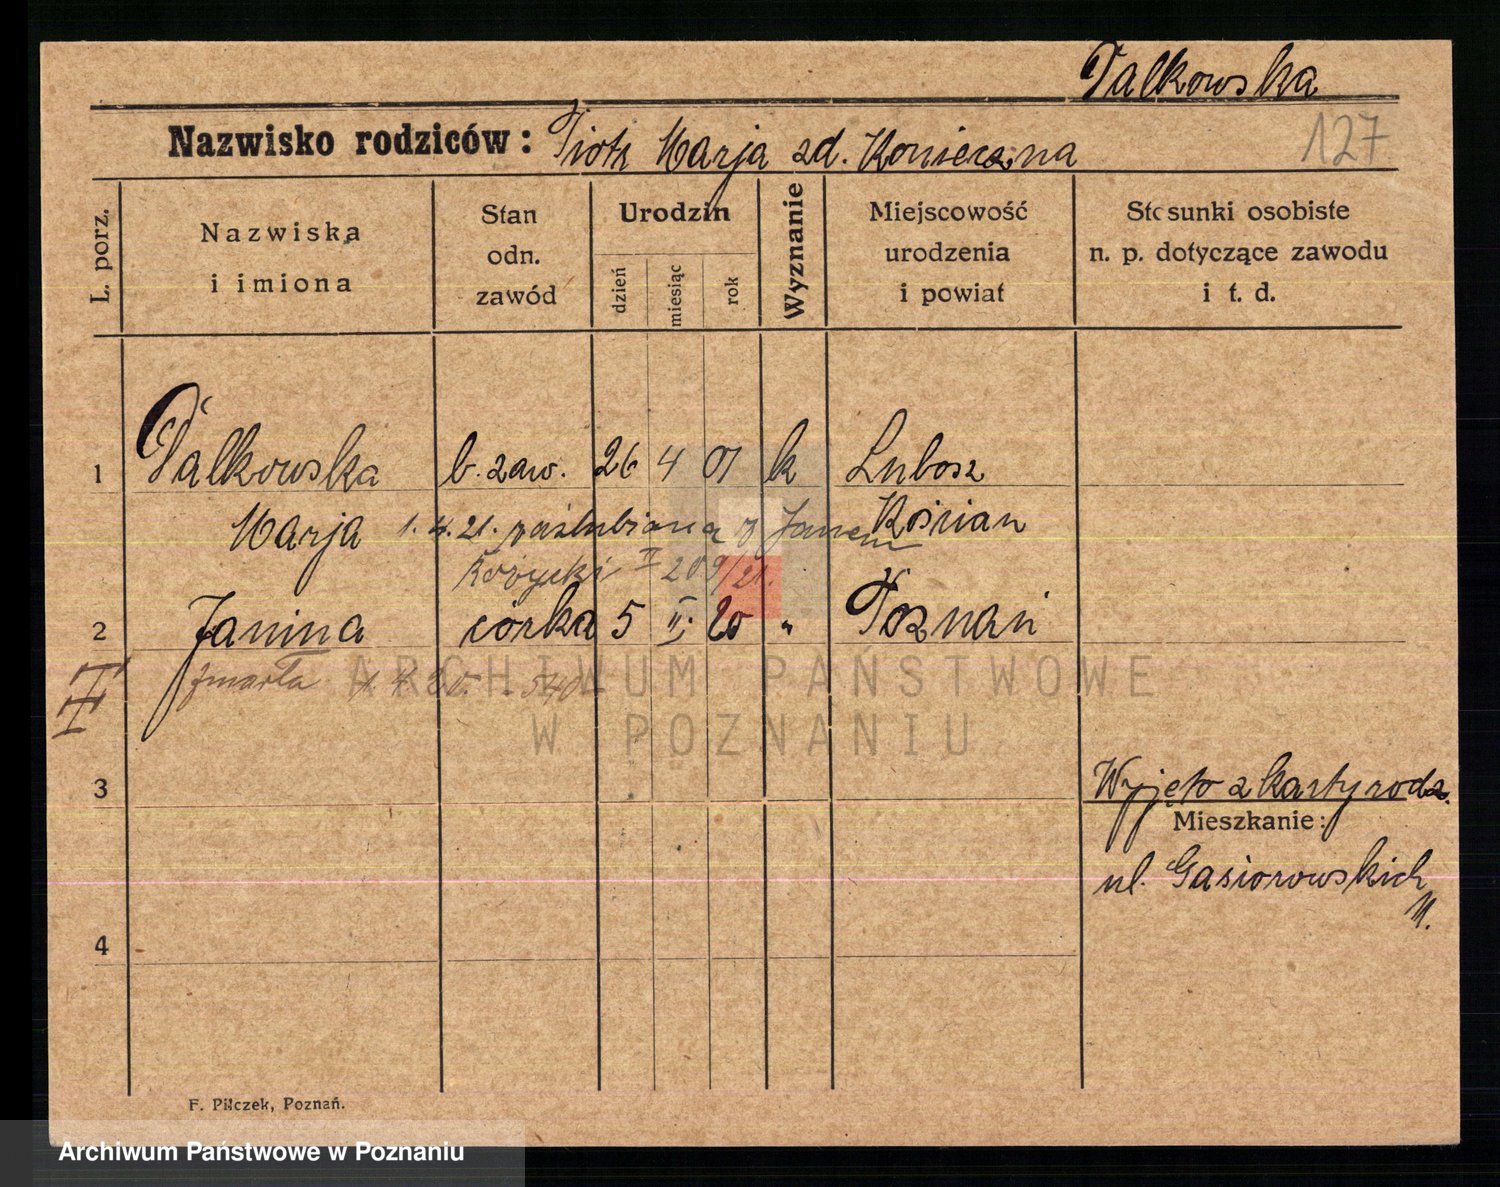 Palkowska
Nazwisko rodziców: Piotr Marja zd. Konieczna
127
L. porz.
Nazwiska
i imiona
Stan
odn.
zawód
Urodzin
dzień
miesiąc
rok
Wyznanie
Miejscowość
urodzenia
i powiat
Stosunki osobiste
n. p. dotyczące zawodu
i t. d.
1 Palkowska b. zaw. 26 4 01 k Lubosz
Marja 1. 4. 21. zaślubiona z Janem Kościan
Różycki II 209/21.
2 Janina córka 5 II. 20 " Poznań
zmarła
ARCHIWUM PAŃSTWOWE
W POZNANIU
3
Wyjęto z karty rodz.
Mieszkanie:
ul. Gąsiorowskich
11.
4
F. Pilczek, Poznań.
Archiwum Państwowe w Poznaniu